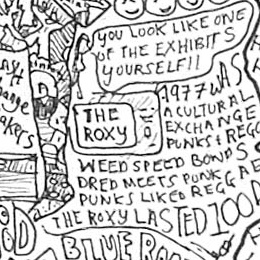 YOU LOOK LIKE ONE
OF THE EXHIBITS
YOURSELF!!
1977 WAS
A CULTURAL
EXCHANGE
PUNKS + REGG
THE
ROXY
WEED SPEED BONDS
DRED MEETS PUNK
PUNKS LIKED REGGAE
THE ROXY LASTED 100 D
BLUE